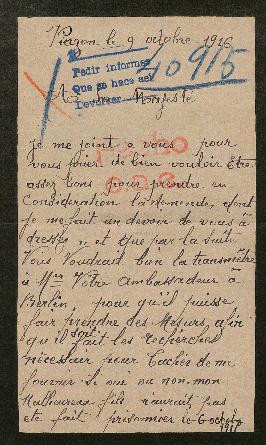 Vierzon le 9 octobre 1916
Pedir informes
Que se hace así
Devolver
40915
A Sa Majesté
Je me joint a vous pour
vous prier de bien vouloir être
assez bons pour prendre en
Considération la demende, dont
je me fait un devoir de vous a
dresser, et que par la suite
Vous Voudrait bien la transmètre
a Mr Votre Ambassadeur à
Berlin pour qu'il puisse
fair prendre des Mesurs, afin
qu'il soit fait les recherches
nécessair pour Tacher de me
fournir si oui ou non mon
Malheureux fils naurait pas
ete fait prisonnier le 6 octobre
1915